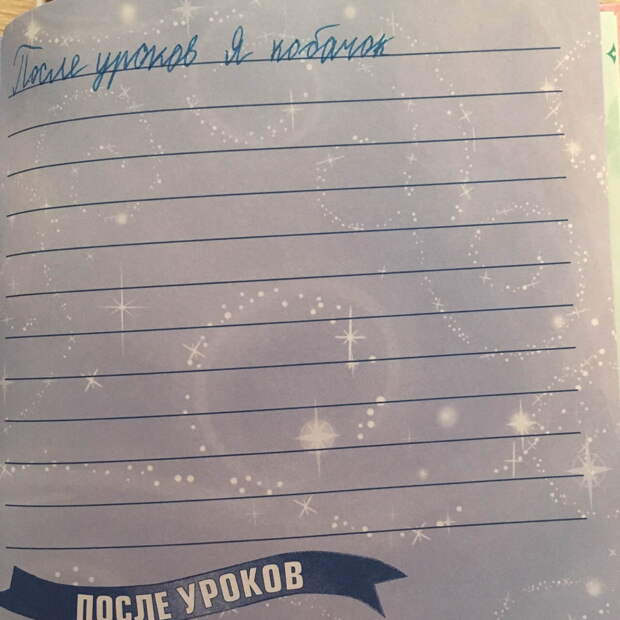 После уроков Я кобачок
ПОСЛЕ УРОКОВ